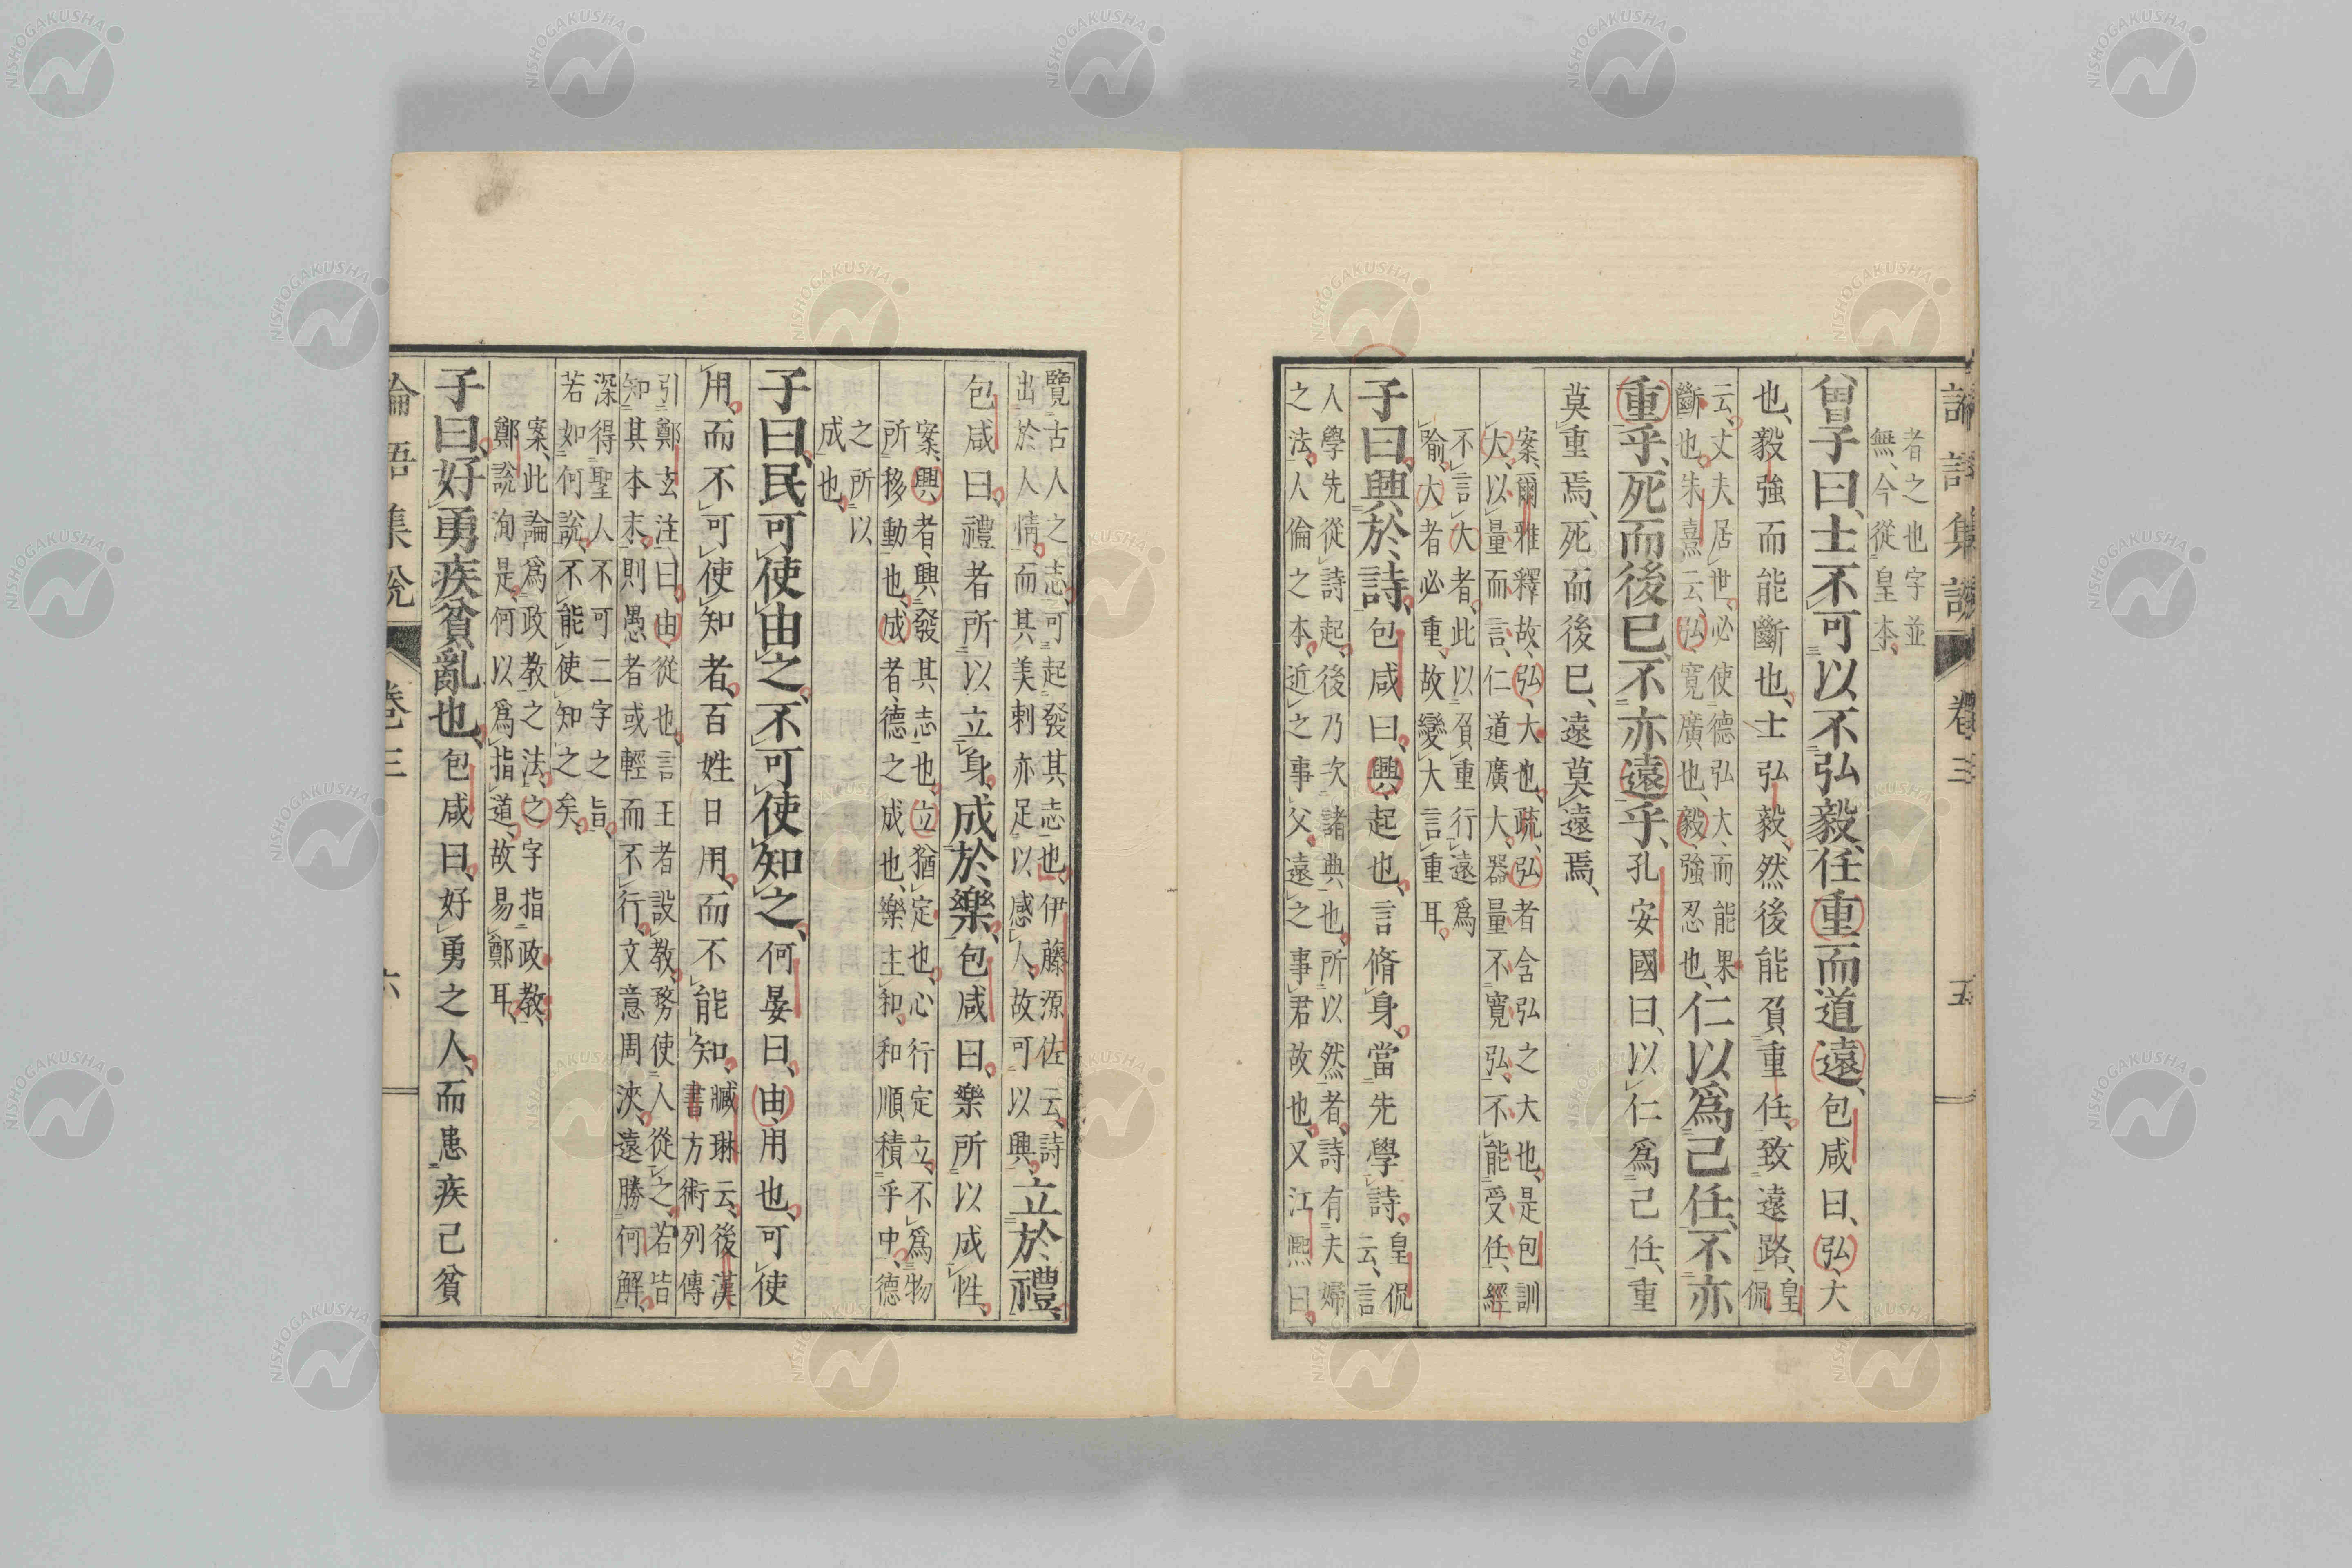 論語集說 卷三 五
者之也字並
無、今從皇本、
曾子曰、士不可以不弘毅、任重而道遠、包咸曰、弘、大
也、毅強而能斷也、士弘毅、然後能負重任、致遠路、皇
侃
云、丈夫居世、必使德弘大、而能果
斷也、朱熹云、弘、寬廣也、毅、強忍也、
仁以爲己任、不亦
重乎、死而後已、不亦遠乎、孔安國曰、以仁爲己任、重
莫重焉、死而後已、遠莫遠焉、
案、爾雅釋故、弘、大也、疏、弘者含弘之大也、是包訓
大、以量而言、仁道廣大、器量不寬弘、不能受任、經
不言大者、此以負重行遠爲
喻、大者必重、故變大言重耳、
子曰、興於詩、包咸曰、興、起也、言脩身、當先學詩、皇侃
云、言
人學先從詩起、後乃次諸典也、所以然者、詩有夫婦
之法、人倫之本、近之事父、遠之事君故也、又江熙曰、
覽古人之志、可起發其志也、伊藤源佐云、詩
出於人情、而其美刺亦足以感人、故可以興、
立於禮、
包咸曰、禮者所以立身、成於樂、包咸曰、樂所以成性、
案、興者、興發其志也、立猶定也、心行定立、不爲物
所移動也、成者、德之成也、樂主和、和順積乎中、德
之所以
成也、
子曰、民可使由之、不可使知之、何晏曰、由、用也、可使
用、而不可使知者、百姓日用、而不能知、臧琳云、後漢
書方術列傳
引鄭玄注曰、由、從也、言王者設教、務使人從之、若皆
知其本末、則愚者或輕而不行、文意周浹、遠勝何解、
深得聖人不可二字之旨、
若如何說、不能使知之矣、
案、此論爲政教之法、之字指政教、
鄭說洵是、何以爲指道、故易鄭耳、
子曰、好勇疾貧亂也、包咸曰、好勇之人、而患疾己貧
論語集說 卷三 六
NISHOGAKUSHA